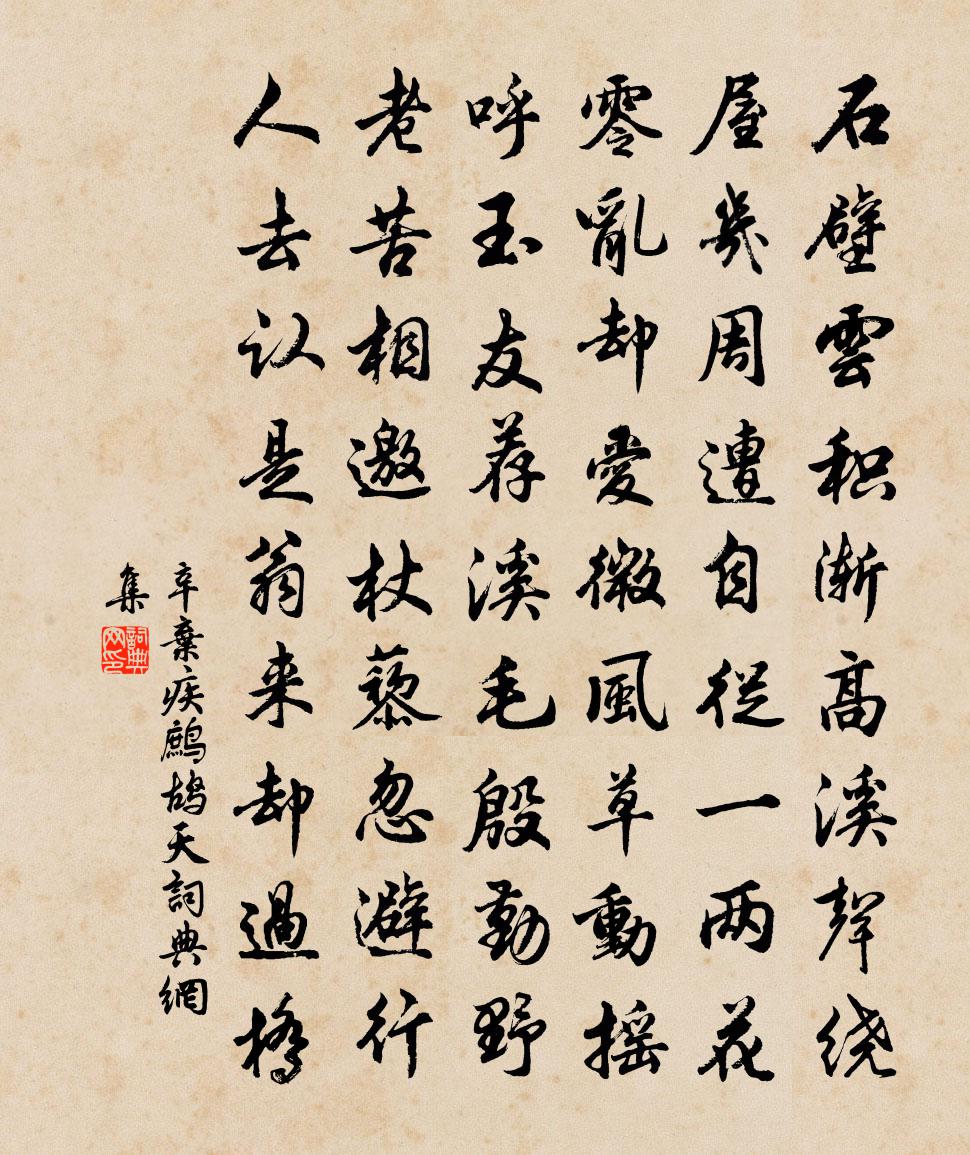 石壁雲积渐高溪聲绕
屋幾周遭自從一两花
零亂却愛微風草動摇
呼玉友荐溪毛殷勤野
老苦相邀杖藜忽避行
人去认是翁来却過橋
辛棄疾鷓鴣天詞典網
集
詞典网印